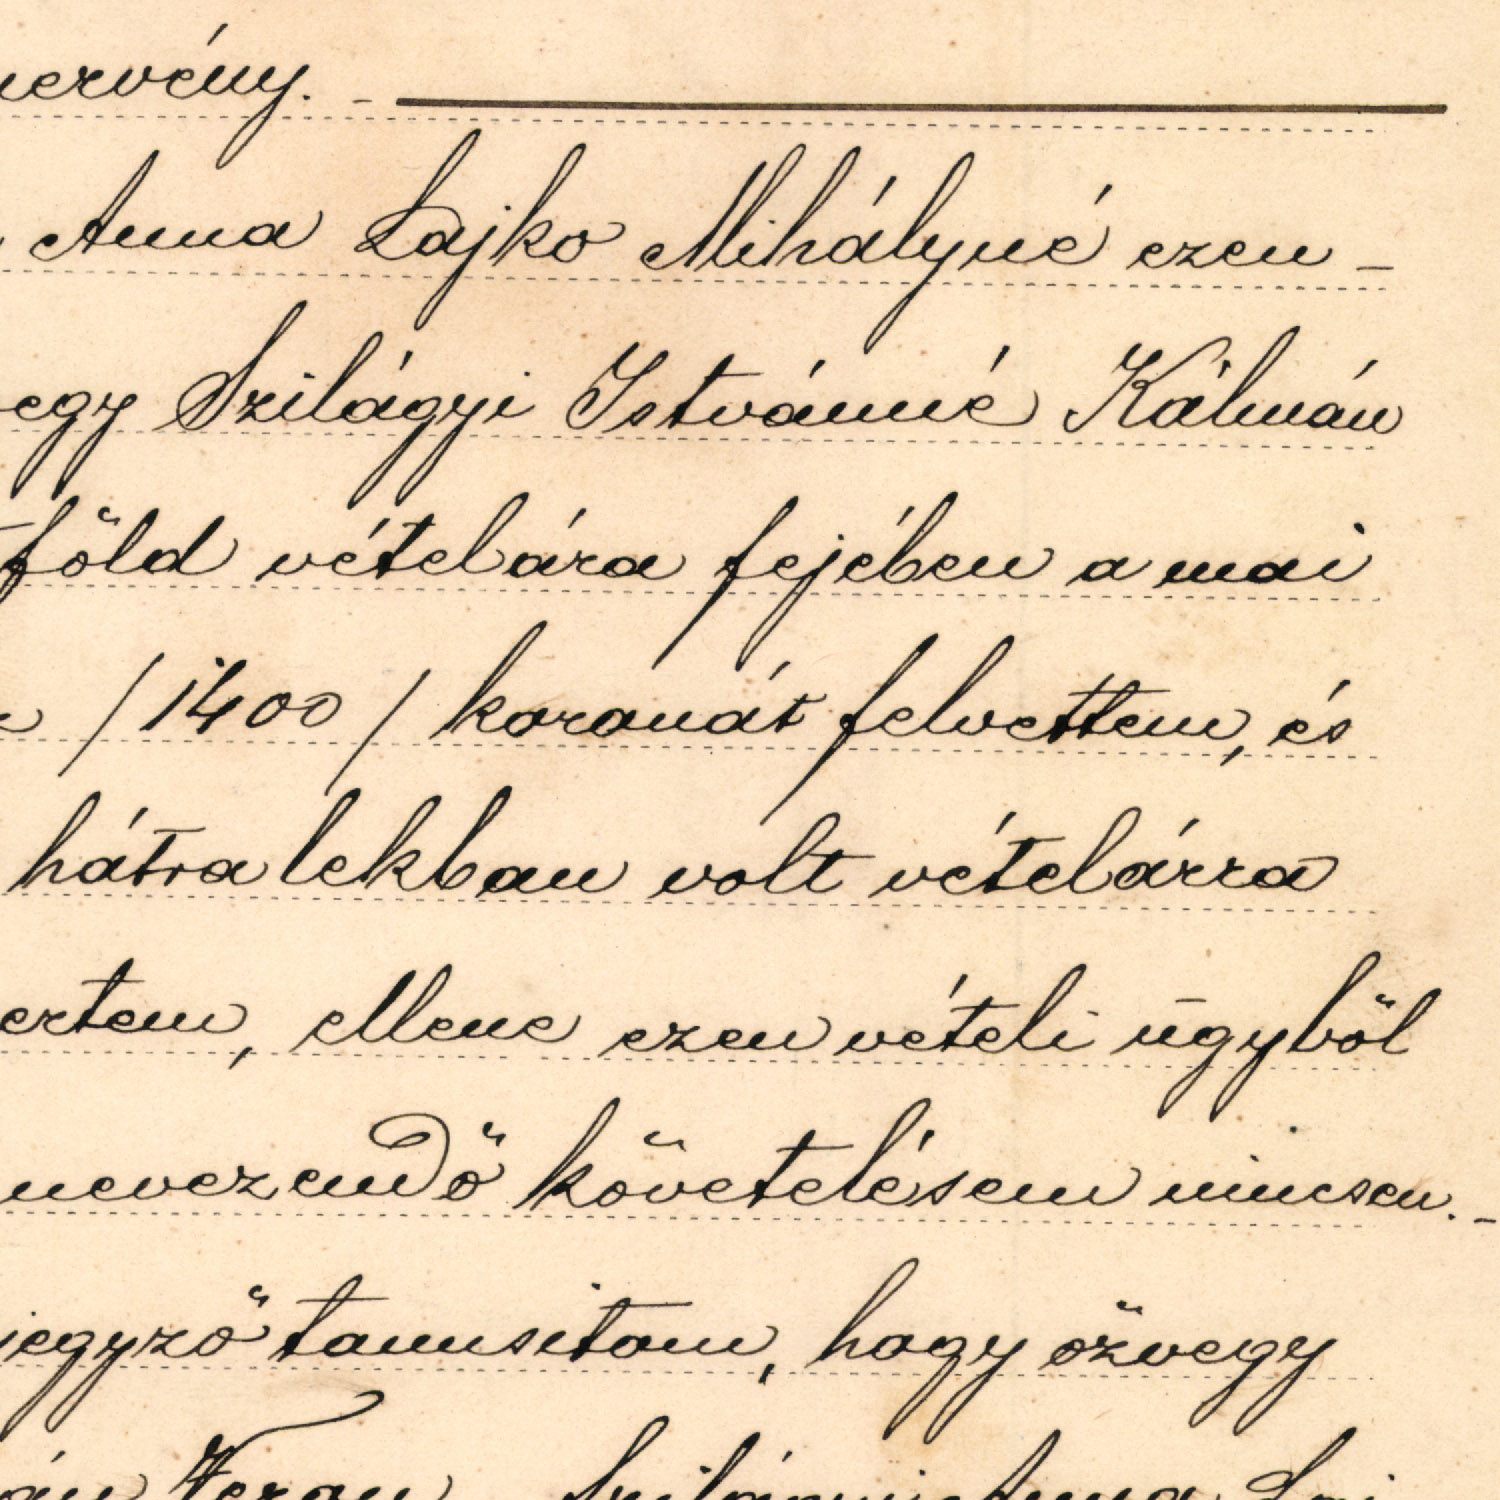 ervény. -
Anna Lajko Mihályné ezen -
egy Szilágyi Istvánné Kálmán
föld vételára fejében a mai
/1400/ koronát felvettem, és
hátralekban volt vételárra
ertem, ellene ezen vételi ügyböl
nevezendő követelésem nincsen. -
jegyző tanusitom, hogy özvegy
án Veron Szilágyi Anna Laj